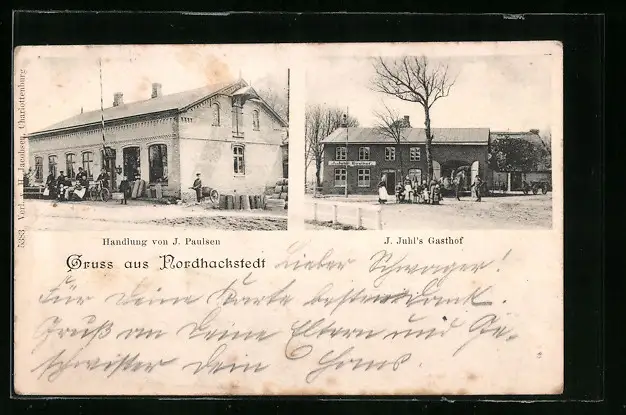 5383 Verl. v. H. Jacobsen, Charlottenburg
Handlung von J. Paulsen
J. Juhl's Gasthof
Gruss aus Nordhackstedt
Lieber Schwager!
Für Deine Karte besten Dank.
Gruß an Deine Eltern und Ge-
schwister Dein Hans